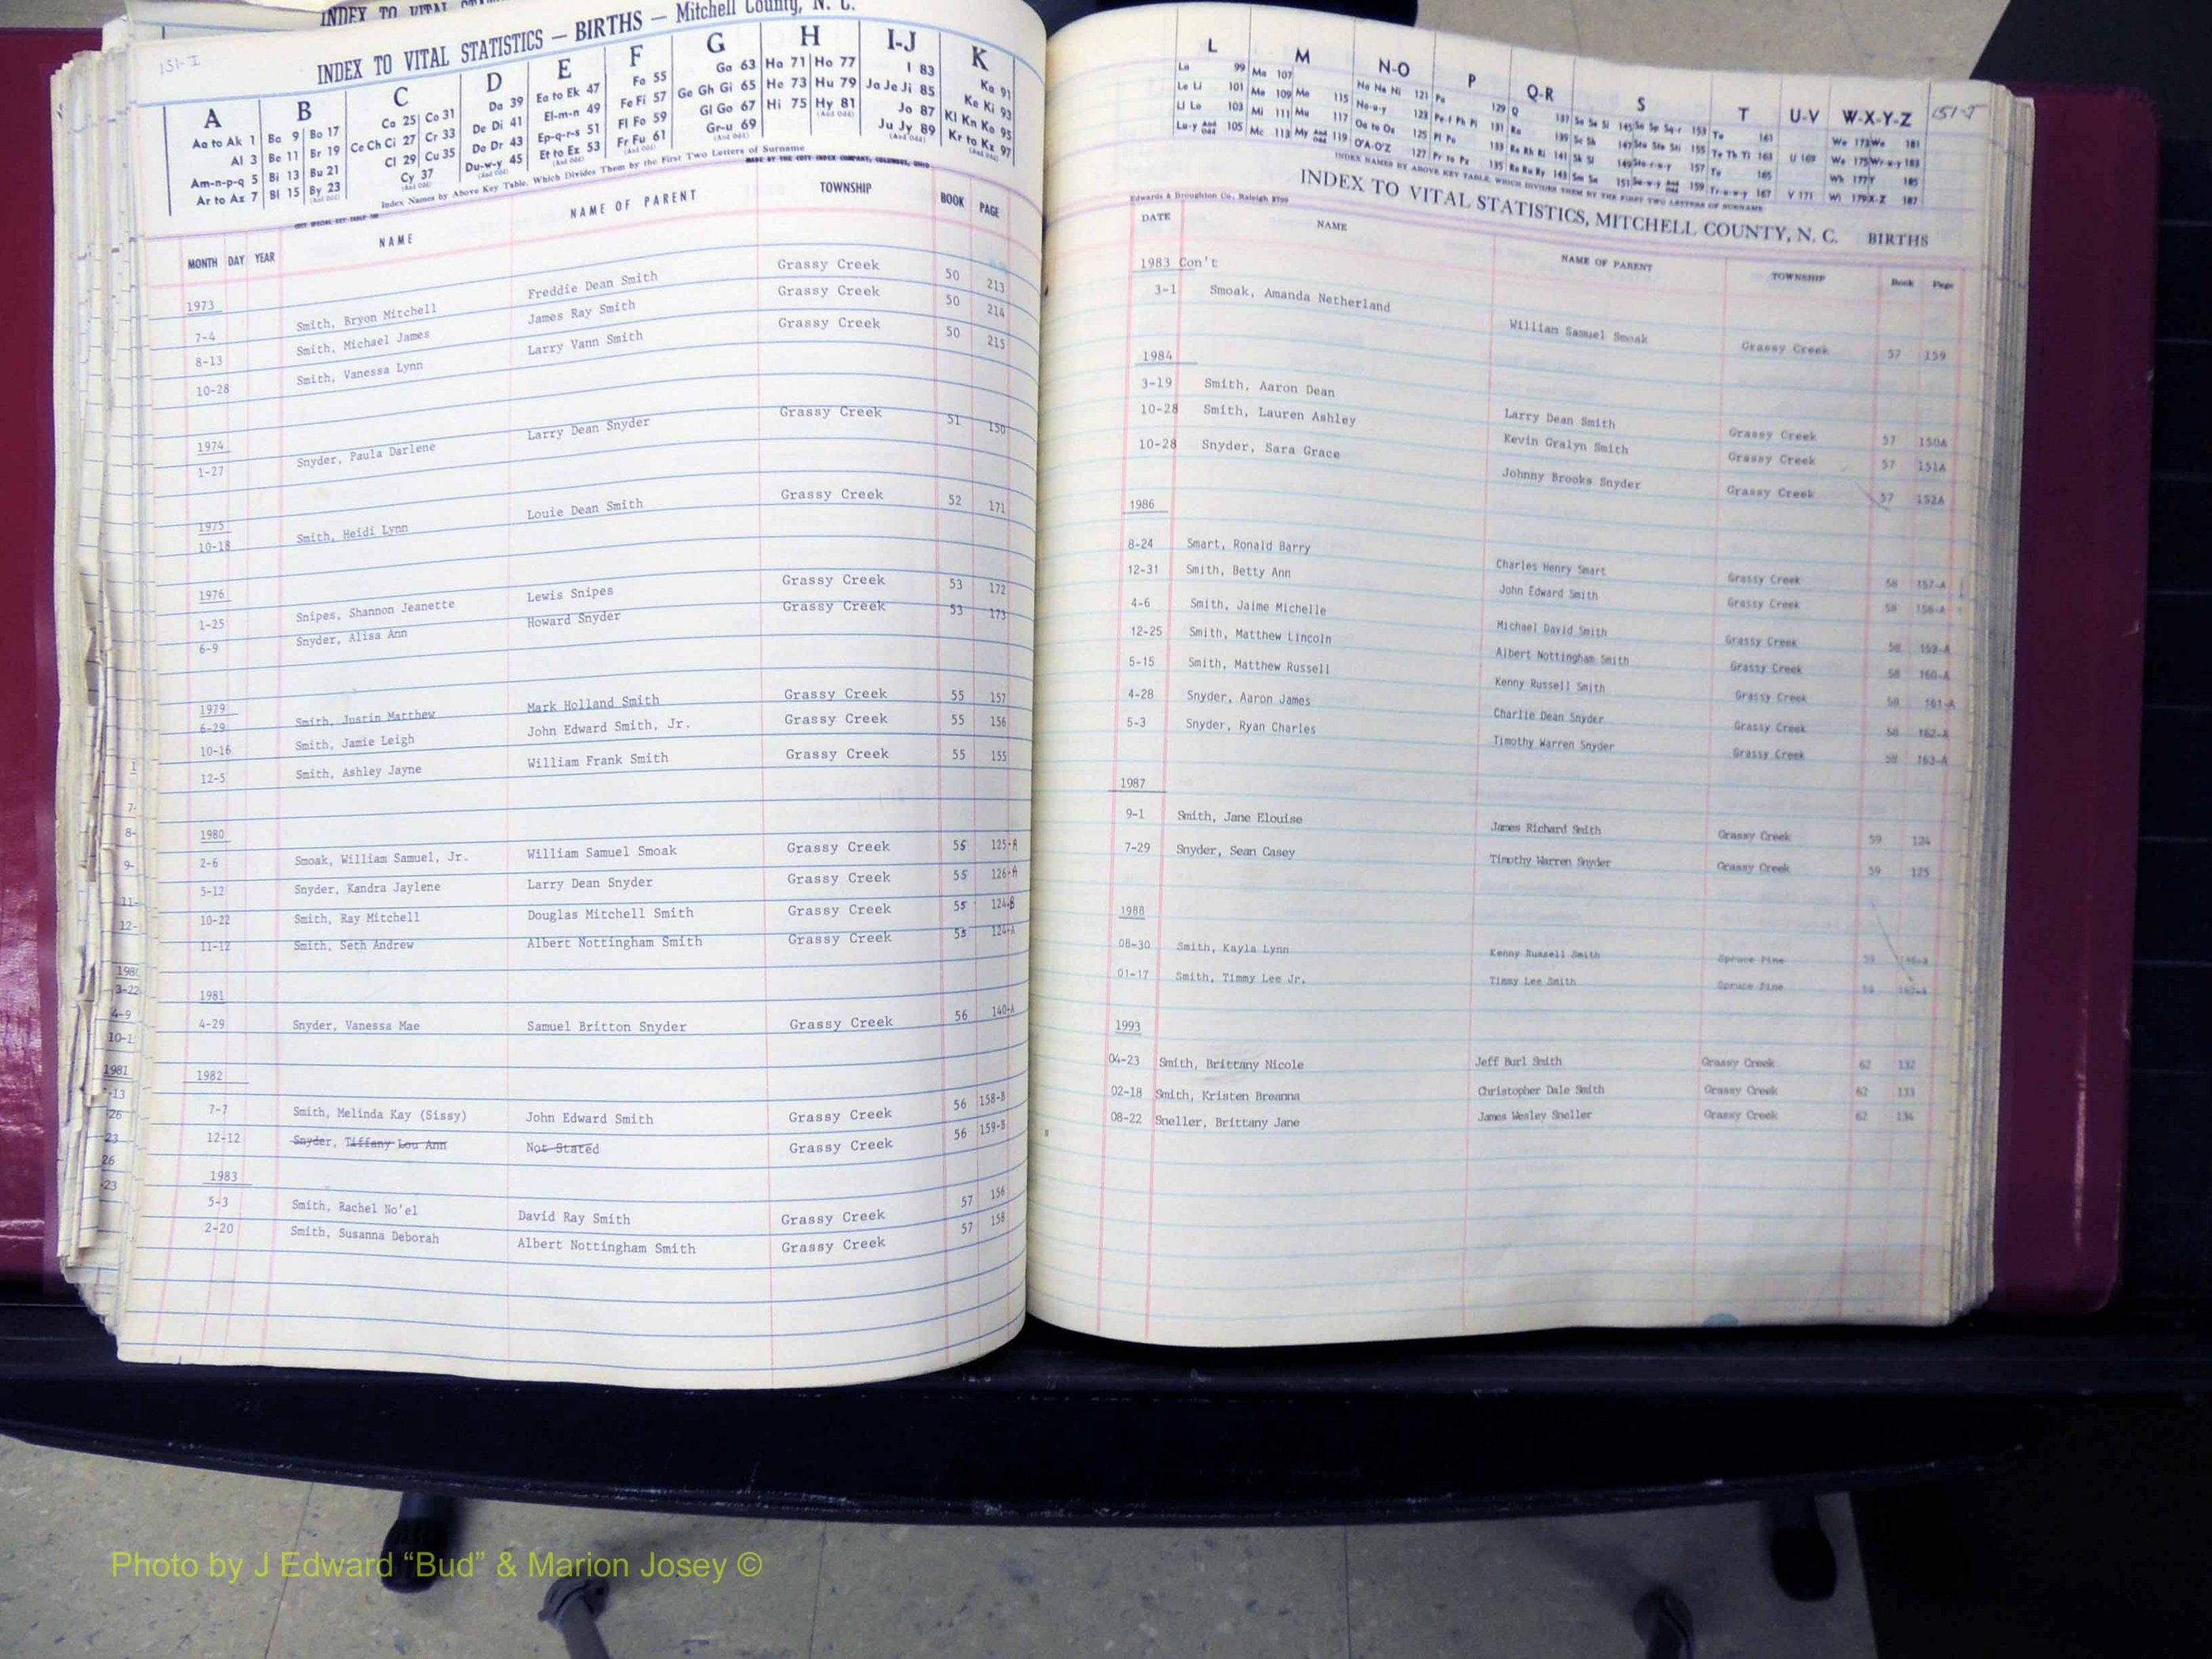 INDEX TO VITAL
151-I
INDEX TO VITAL STATISTICS — BIRTHS — Mitchell County, N. C.
A B C D E F G H I-J K
Aa to Ak 1 Ba 9 Bo 17 Ca 25 Co 31 Da 39 Ea to Ek 47 Fa 55 Ga 63 Ha 71 Ho 77 I 83 Ka 91
Al 3 Be 11 Br 19 Ce Ch Ci 27 Cr 33 De Di 41 El-m-n 49 Fe Fi 57 Ge Gh Gi 65 He 73 Hu 79 Ja Je Ji 85 Ke Ki 93
Am-n-p-q 5 Bi 13 Bu 21 Cl 29 Cu 35 Do Dr 43 Ep-q-r-s 51 Fl Fo 59 Gl Go 67 Hi 75 Hy 81 Jo 87 Kl Kn Ko 95
Ar to Az 7 Bl 15 By 23 Cy 37 Du-w-y 45 Et to Ez 53 Fr Fu 61 Gr-u 69 Ju Jy 89 Kr to Kz 97
Index Names by Above Key Table, Which Divides Them by the First Two Letters of Surname
MADE BY THE COTT INDEX COMPANY, COLUMBUS, OHIO
MONTH DAY YEAR NAME NAME OF PARENT TOWNSHIP BOOK PAGE
1973
7-4 Smith, Bryon Mitchell Freddie Dean Smith Grassy Creek 50 213
8-13 Smith, Michael James James Ray Smith Grassy Creek 50 214
10-28 Smith, Vanessa Lynn Larry Vann Smith Grassy Creek 50 215
1974
1-27 Snyder, Paula Darlene Larry Dean Snyder Grassy Creek 51 150
1975
10-18 Smith, Heidi Lynn Louie Dean Smith Grassy Creek 52 171
1976
1-25 Snipes, Shannon Jeanette Lewis Snipes Grassy Creek 53 172
6-9 Snyder, Alisa Ann Howard Snyder Grassy Creek 53 173
1979
6-29 Smith, Justin Matthew Mark Holland Smith Grassy Creek 55 157
10-16 Smith, Jamie Leigh John Edward Smith, Jr. Grassy Creek 55 156
12-5 Smith, Ashley Jayne William Frank Smith Grassy Creek 55 155
1980
2-6 Smoak, William Samuel, Jr. William Samuel Smoak Grassy Creek 55 125-A
5-12 Snyder, Kandra Jaylene Larry Dean Snyder Grassy Creek 55 126-A
10-22 Smith, Ray Mitchell Douglas Mitchell Smith Grassy Creek 55 124-B
11-12 Smith, Seth Andrew Albert Nottingham Smith Grassy Creek 55 124-A
1981
4-29 Snyder, Vanessa Mae Samuel Britton Snyder Grassy Creek 56 140-A
1982
7-7 Smith, Melinda Kay (Sissy) John Edward Smith Grassy Creek 56 158-B
12-12 Snyder, Tiffany Lou Ann Not Stated Grassy Creek 56 159-B
1983
5-3 Smith, Rachel No'el David Ray Smith Grassy Creek 57 156
2-20 Smith, Susanna Deborah Albert Nottingham Smith Grassy Creek 57 158
L M N-O P Q-R S T U-V W-X-Y-Z 151-I
INDEX NAMES BY ABOVE KEY TABLE, WHICH DIVIDES THEM BY THE FIRST TWO LETTERS OF SURNAME
Edwards & Broughton Co., Raleigh
INDEX TO VITAL STATISTICS, MITCHELL COUNTY, N. C. BIRTHS
DATE NAME NAME OF PARENT TOWNSHIP Book Page
1983 Con't
3-1 Smoak, Amanda Netherland William Samuel Smoak Grassy Creek 57 159
1984
3-19 Smith, Aaron Dean Larry Dean Smith Grassy Creek 57 150A
10-28 Smith, Lauren Ashley Kevin Gralyn Smith Grassy Creek 57 151A
10-28 Snyder, Sara Grace Johnny Brooks Snyder Grassy Creek 57 152A
1986
8-24 Smart, Ronald Barry Charles Henry Smart Grassy Creek 58 157-A
12-31 Smith, Betty Ann John Edward Smith Grassy Creek 58 158-A
4-6 Smith, Jaime Michelle Michael David Smith Grassy Creek 58 159-A
12-25 Smith, Matthew Lincoln Albert Nottingham Smith Grassy Creek 58 160-A
5-15 Smith, Matthew Russell Kenny Russell Smith Grassy Creek 58 161-A
4-28 Snyder, Aaron James Charlie Dean Snyder Grassy Creek 58 162-A
5-3 Snyder, Ryan Charles Timothy Warren Snyder Grassy Creek 58 163-A
1987
9-1 Smith, Jane Elouise James Richard Smith Grassy Creek 59 124
7-29 Snyder, Sean Casey Timothy Warren Snyder Grassy Creek 59 125
1988
08-30 Smith, Kayla Lynn Kenny Russell Smith Spruce Pine 59
01-17 Smith, Timmy Lee Jr. Timmy Lee Smith Spruce Pine 59
1993
04-23 Smith, Brittany Nicole Jeff Burl Smith Grassy Creek 62 132
02-18 Smith, Kristen Breanna Christopher Dale Smith Grassy Creek 62 133
08-22 Sneller, Brittany Jane James Wesley Sneller Grassy Creek 62 134
Photo by J Edward “Bud” & Marion Josey ©